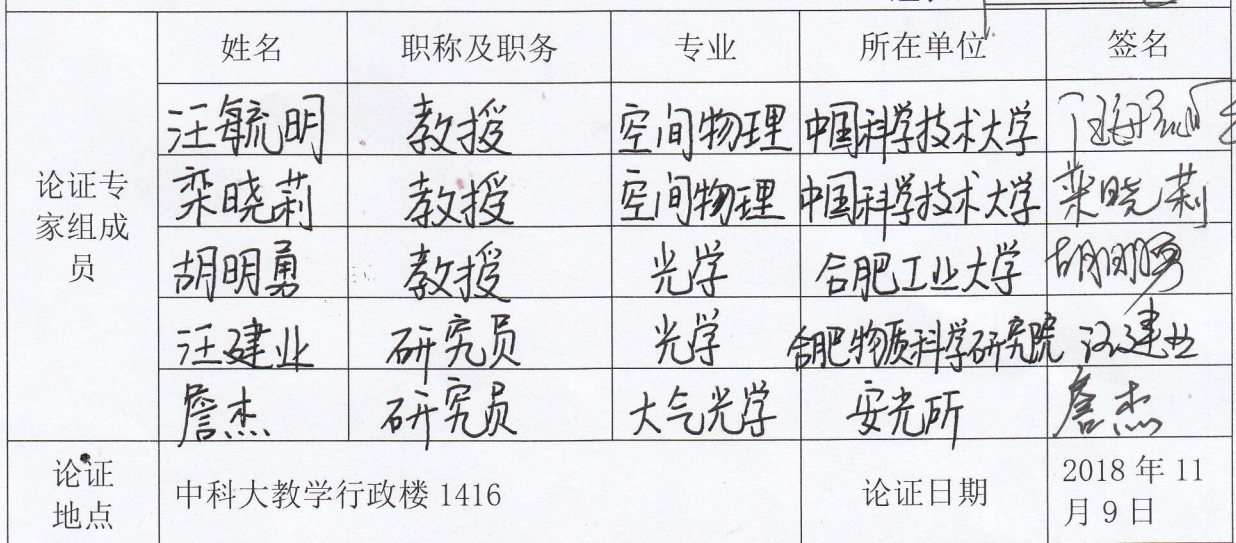 姓名 职称及职务 专业 所在单位 签名
论证专家组成员
汪毓明 教授 空间物理 中国科学技术大学
栾晓莉 教授 空间物理 中国科学技术大学 栾晓莉
胡明勇 教授 光学 合肥工业大学 胡明勇
汪建业 研究员 光学 合肥物质科学研究院 汪建业
詹杰 研究员 大气光学 安光所 詹杰
论证地点 中科大教学行政楼1416 论证日期 2018年11月9日